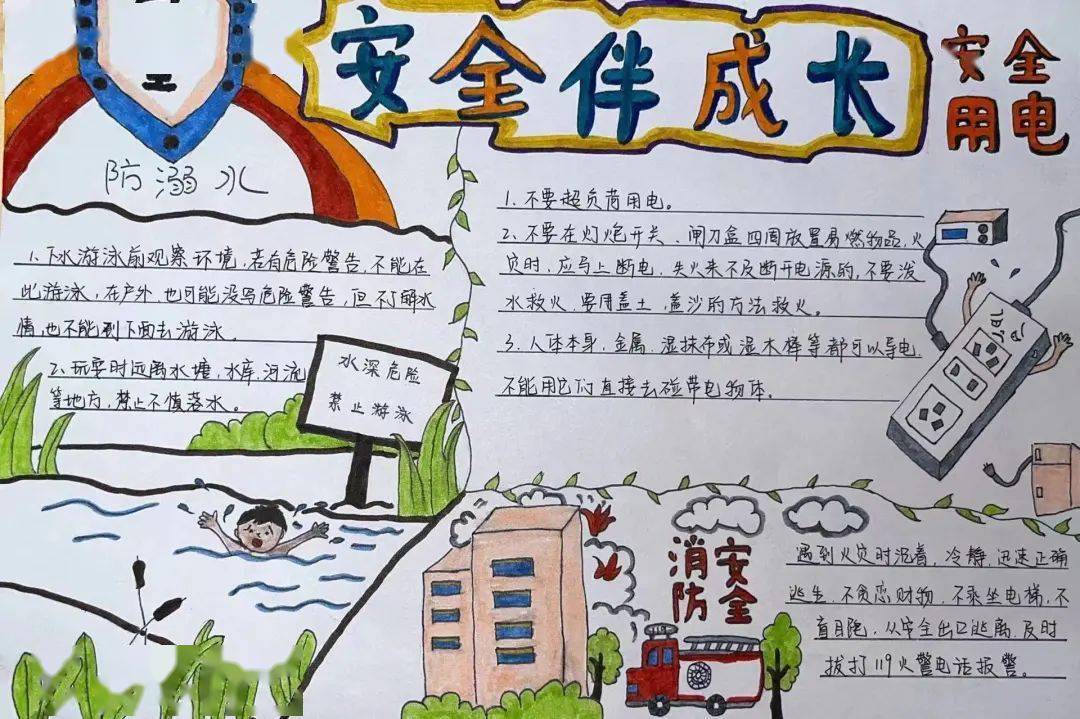 安全伴成长
安全
用电
防溺水
1.下水游泳前观察环境,若有危险警告,不能在
此游泳,在户外,也可能没写危险警告,但不了解水
情,也不能到下面去游泳。
2、玩耍时远离水塘,水库,河流
等地方,禁止不慎落水。
水深危险
禁止游泳
1.不要超负荷用电。
2、不要在灯炮开关、闸刀盒四周放置易燃物品,火
灾时,应马上断电,失火来不及断开电源的,不要泼
水救火,要用盖土,盖沙的方法救火。
3、人体本身,金属,湿抹布或湿木棒等都可以导电,
不能用它们直接去碰带电物体。
消防
安全
遇到火灾时沉着,冷静,迅速正确
逃生,不贪恋财物,不乘坐电梯,不
盲目跑,从安全出口逃离,及时
拔打119火警电话报警。